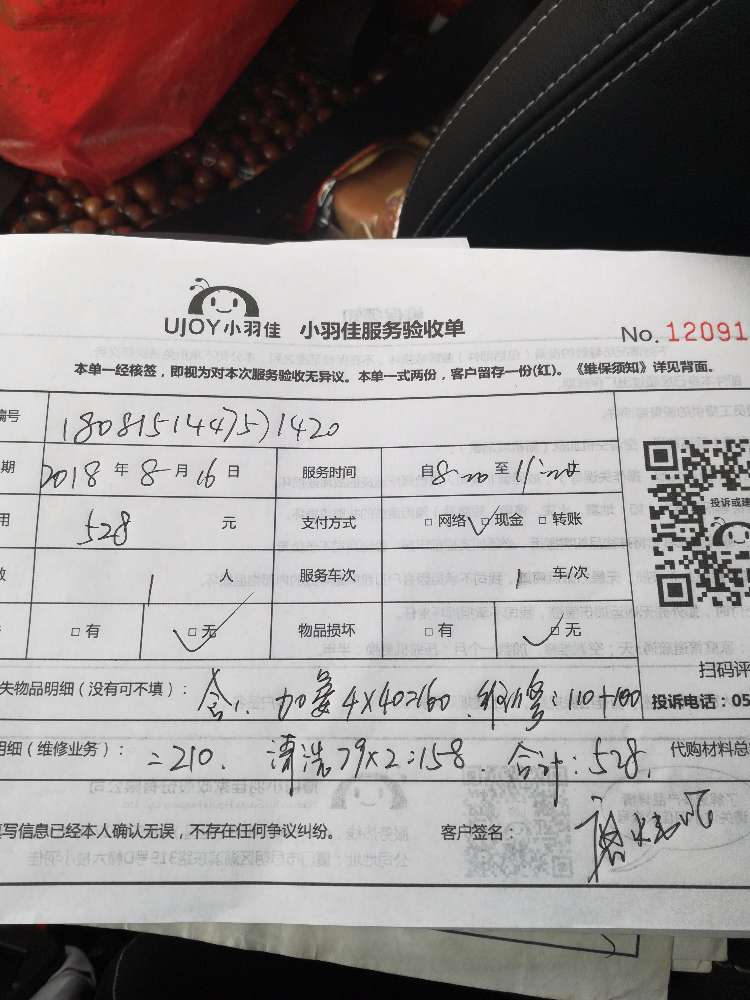 UJOY小羽佳 小羽佳服务验收单 No. 12091
本单一经核签，即视为对本次服务验收无异议。本单一式两份，客户留存一份(红)。《维保须知》详见背面。
编号 180815144751420
期 2018 年 8 月 16 日 服务时间 自8:00至11:00
用 528 元 支付方式 □ 网络 □ 现金 □ 转账
数 1 人 服务车次 1 车/次
□ 有 □ 无 物品损坏 □ 有 □ 无
投诉或建
扫码评
失物品明细（没有可不填）： 加氨4X40=160 维修：110+100 投诉电话：05
明细（维修业务）： =210. 清洗79X2=158 合计：528. 代购材料总
填写信息已经本人确认无误，不存在任何争议纠纷。 客户签名：